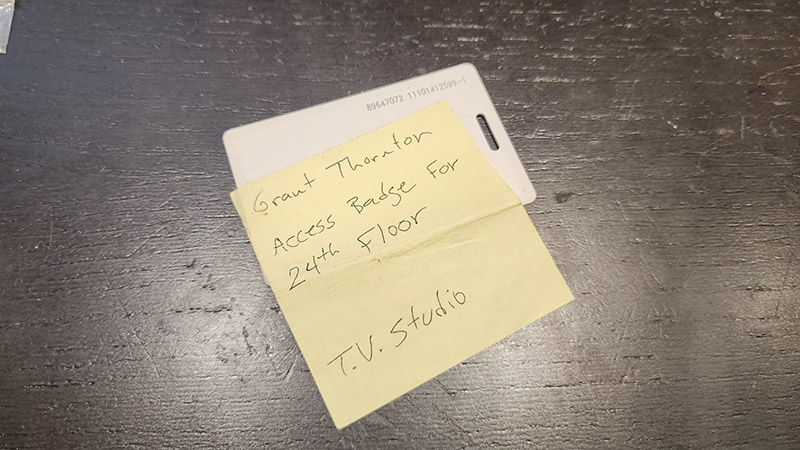 89647072 11101412599-1
Grant Thornton
Access Badge For
24th Floor
T.V. Studio